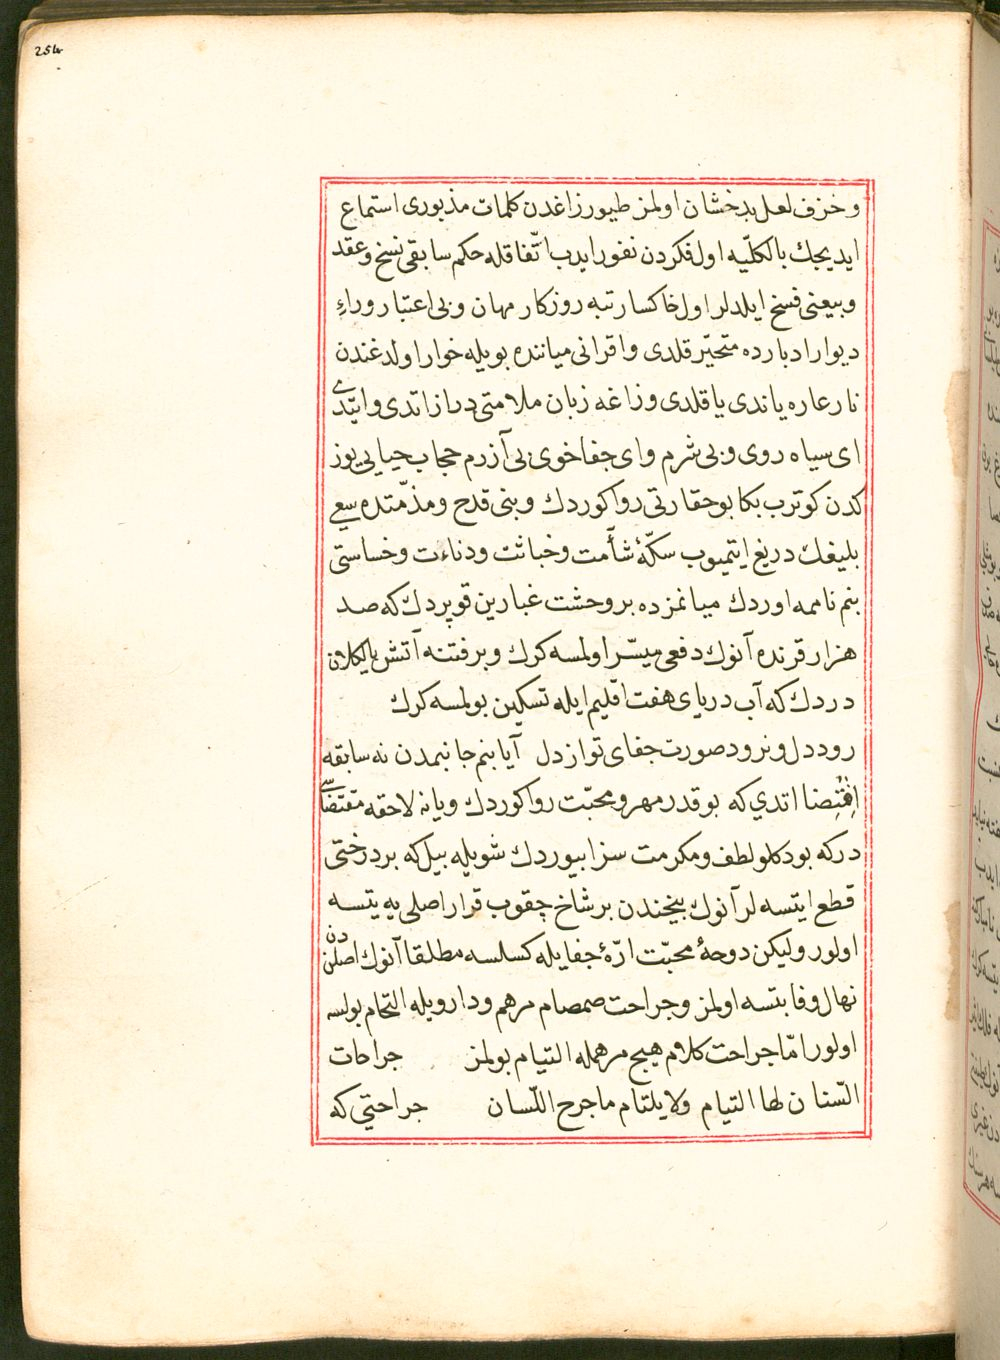 254
و خزف لعل بدخشان اولمز طیور زاغدن کلمات مذبوری استماع
ایدیجك بالکلّیه اول فکردن نفور ایدب اتّفاقله حکم سابقی نسخ و عقد
و بیعنی فسخ ایلدلر اول خاکسار تبه روزکار مهان و بی اعتبار وراءِ
دیوار ادبارده متحیّر قلدی و اقرانی میاننده بویله خوار اولدغندن
نار عاره یاندی یاقلدی و زاغه زبان ملامتی دراز اتدی و ایتّدی
ای سیاه روی و بی شرم وای جفا خوی بی آزرم حجاب حیایی یوز
کدن کوترب بکا بو حقارتی روا کوردك و بنی قدح و مذمّتده سعی
بلیغك دریغ ایتمیوب سکّۀ شأمت و خباثت و دناءت و خساستی
بنم نامه اوردك میانمزده بر وحشت غبارین قوپردك که صد
هزار قرنده آنوك دفعی میسّر اولمسه کرك و بر فتنه آتش یالکلان
دردك که آب دریای هفت اقلیم ایله تسکین بولمسه کرك
رود دل و نرود صورت جفای تو از دل آیا بنم جانبمدن نه سابقه
اِقْتِضا اتدی که بو قدر مهر و محبّت روا کوردك و یا نه لاحقه مقتضاسی
درکه بو دکلو لطف و مکرمت سزا بیوردك شویله بیل که بر درختی
قطع ایتسه لر آنوك بیخندن بر شاخ چقوب قرار اصلی یه یتسه
اولور ولیکن دوحۀ محبّت ارّۀ جفایله کسلسه مطلقا آنوك اصلندن
نهال وفا بتسه اولمز و جراحت صمصام مرهم و دارویله التحام بولسه
اولور امّا جراحت کلام هیچ مرهمله التیام بولمز جراحات
السّنان لها التیام ولا یلتام ما جرح اللّسان جراحتی که